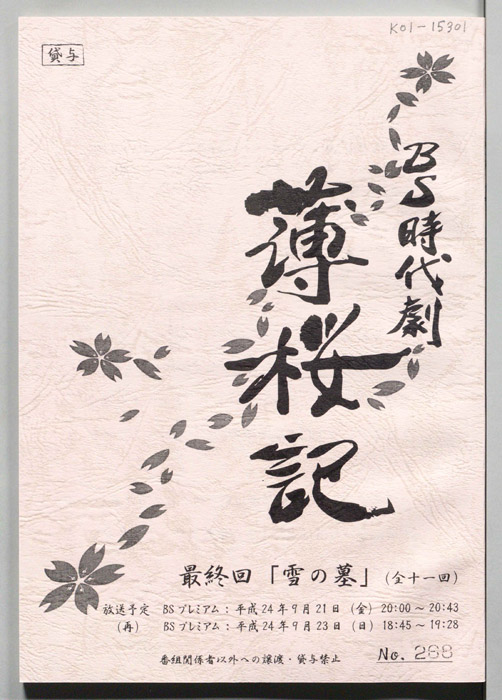 K01-15301
貸与
BS時代劇
薄桜記
最終回「雪の墓」(全十一回)
放送予定 BSプレミアム:平成24年9月21日(金)20:00~20:43
(再) BSプレミアム:平成24年9月23日(日)18:45~19:28
番組関係者以外への譲渡・貸与禁止
No. 268